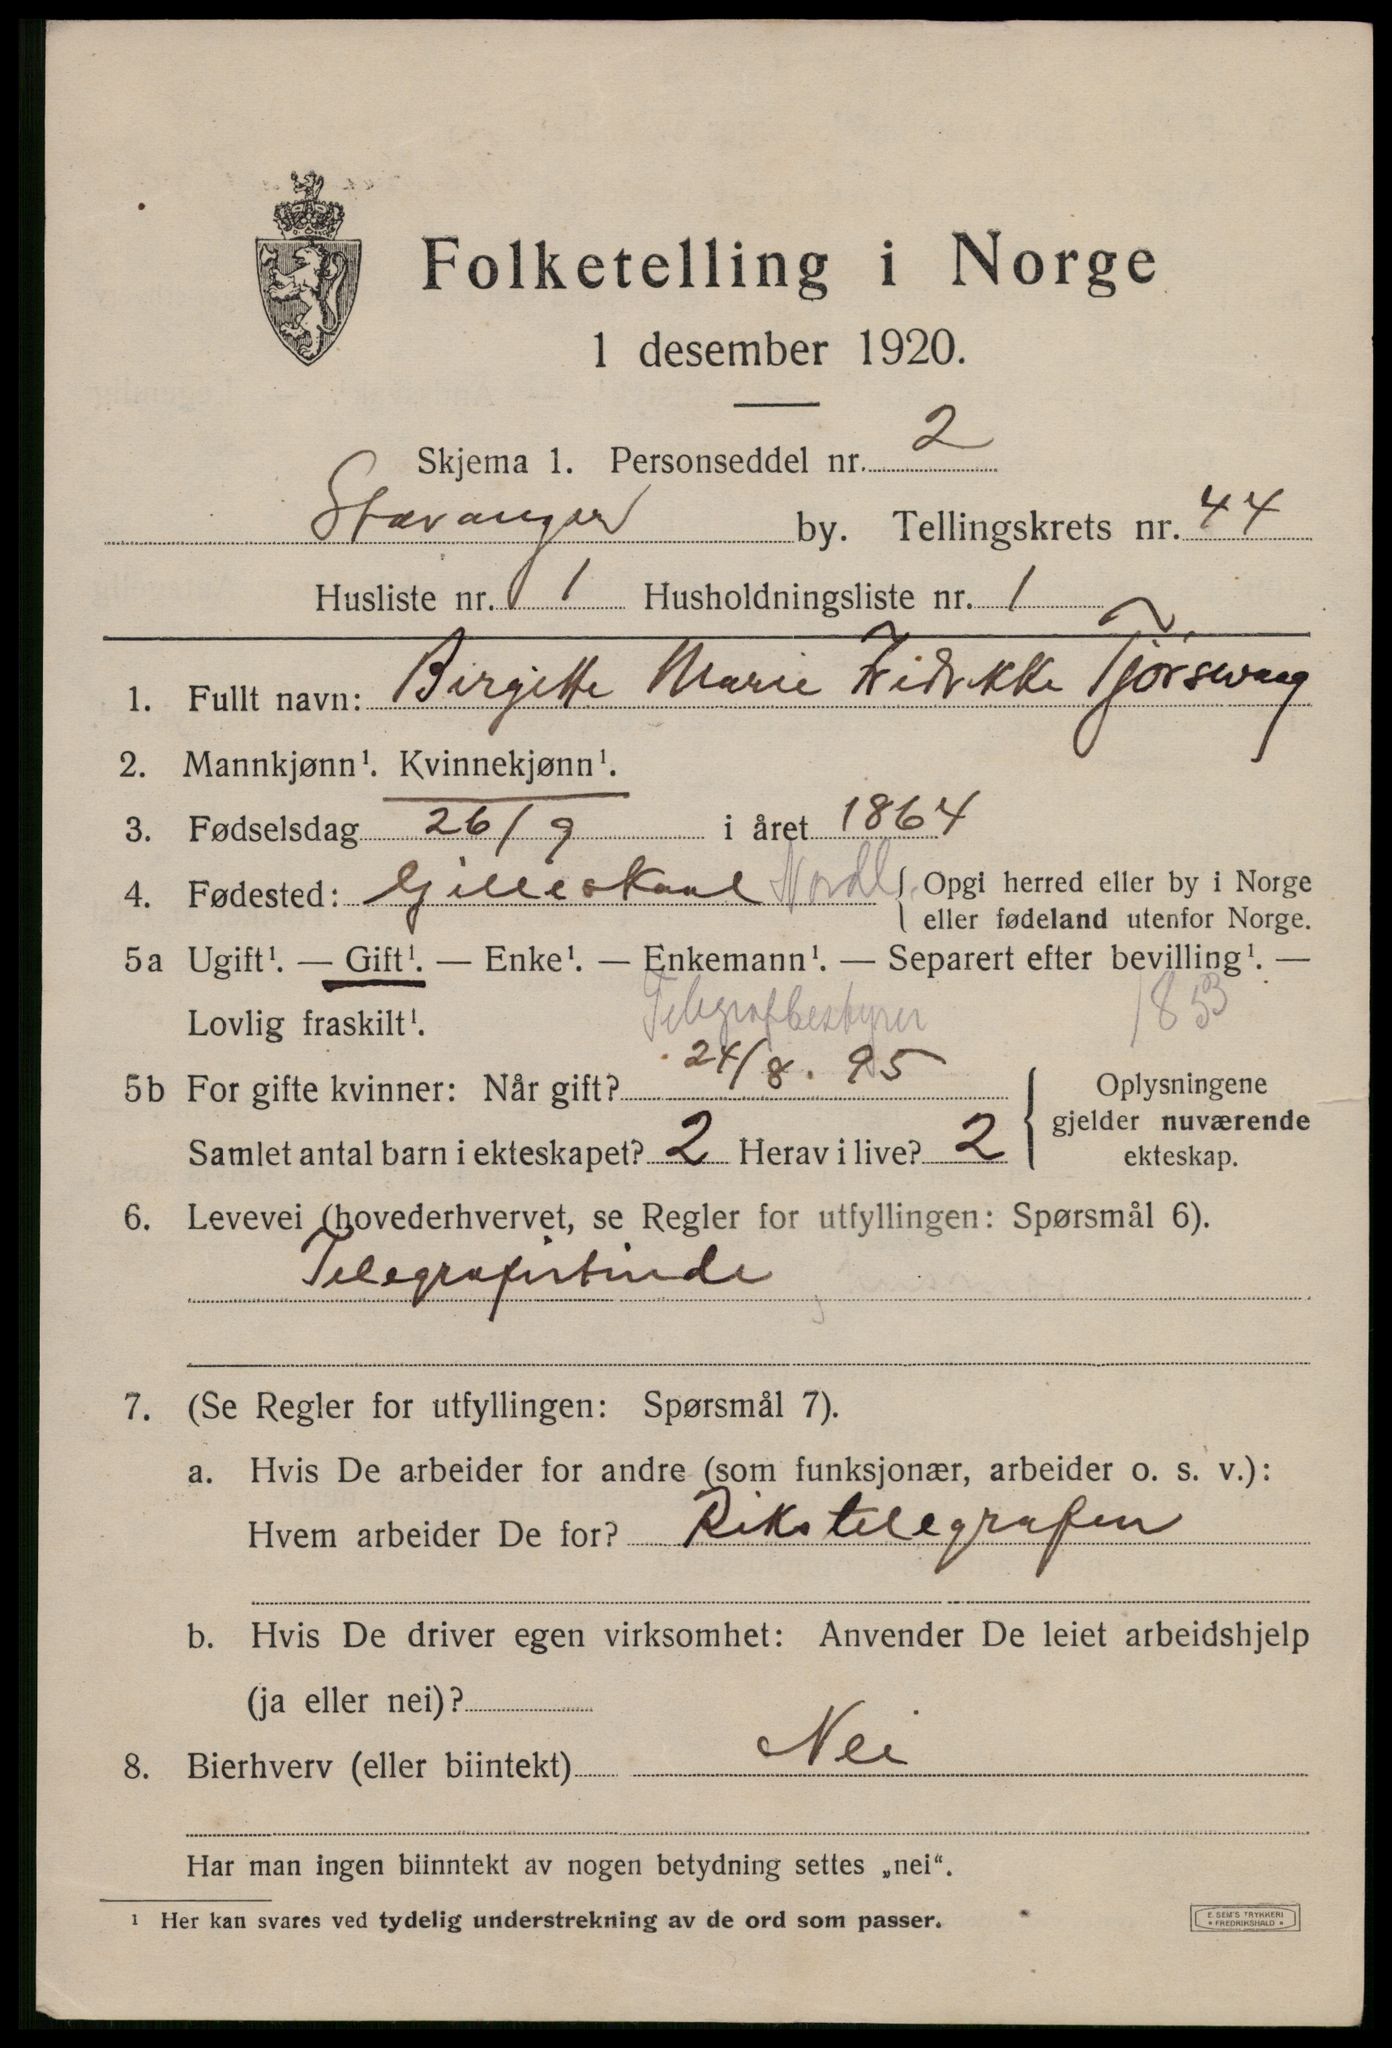 Folketelling i Norge
1 desember 1920.
Skjema 1. Personseddel nr. 2
Stavanger by. Tellingskrets nr. 44
Husliste nr. 1 Husholdningsliste nr. 1
1. Fullt navn: Birgitte Marie Fredrikke Tjørswaag
2. Mannkjønn¹. Kvinnekjønn¹.
3. Fødselsdag 26/9 i året 1864
4. Fødested: Gilleskaal Nordl. { Opgi herred eller by i Norge
eller fødeland utenfor Norge.
5a Ugift¹. — Gift¹. — Enke¹. — Enkemann¹. — Separert efter bevilling¹. —
Lovlig fraskilt¹. Telegrafbestyrer 1853
5b For gifte kvinner: Når gift? 24/8. 95
Samlet antal barn i ekteskapet? 2 Herav i live? 2
Oplysningene
gjelder nuværende
ekteskap.
6. Levevei (hovederhvervet, se Regler for utfyllingen: Spørsmål 6).
Telegrafistinde
7. (Se Regler for utfyllingen: Spørsmål 7).
a. Hvis De arbeider for andre (som funksjonær, arbeider o. s. v.):
Hvem arbeider De for? Rikstelegrafen
b. Hvis De driver egen virksomhet: Anvender De leiet arbeidshjelp
(ja eller nei)?
8. Bierhverv (eller biintekt) Nei
Har man ingen biinntekt av nogen betydning settes „nei“.
¹ Her kan svares ved tydelig understrekning av de ord som passer.
E. SEM'S TRYKKERI
* FREDRIKSHALD *